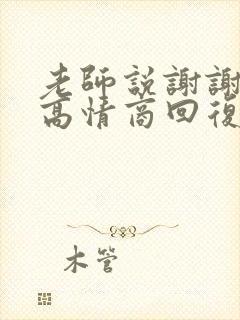 老師説謝謝
高情商回復
木管